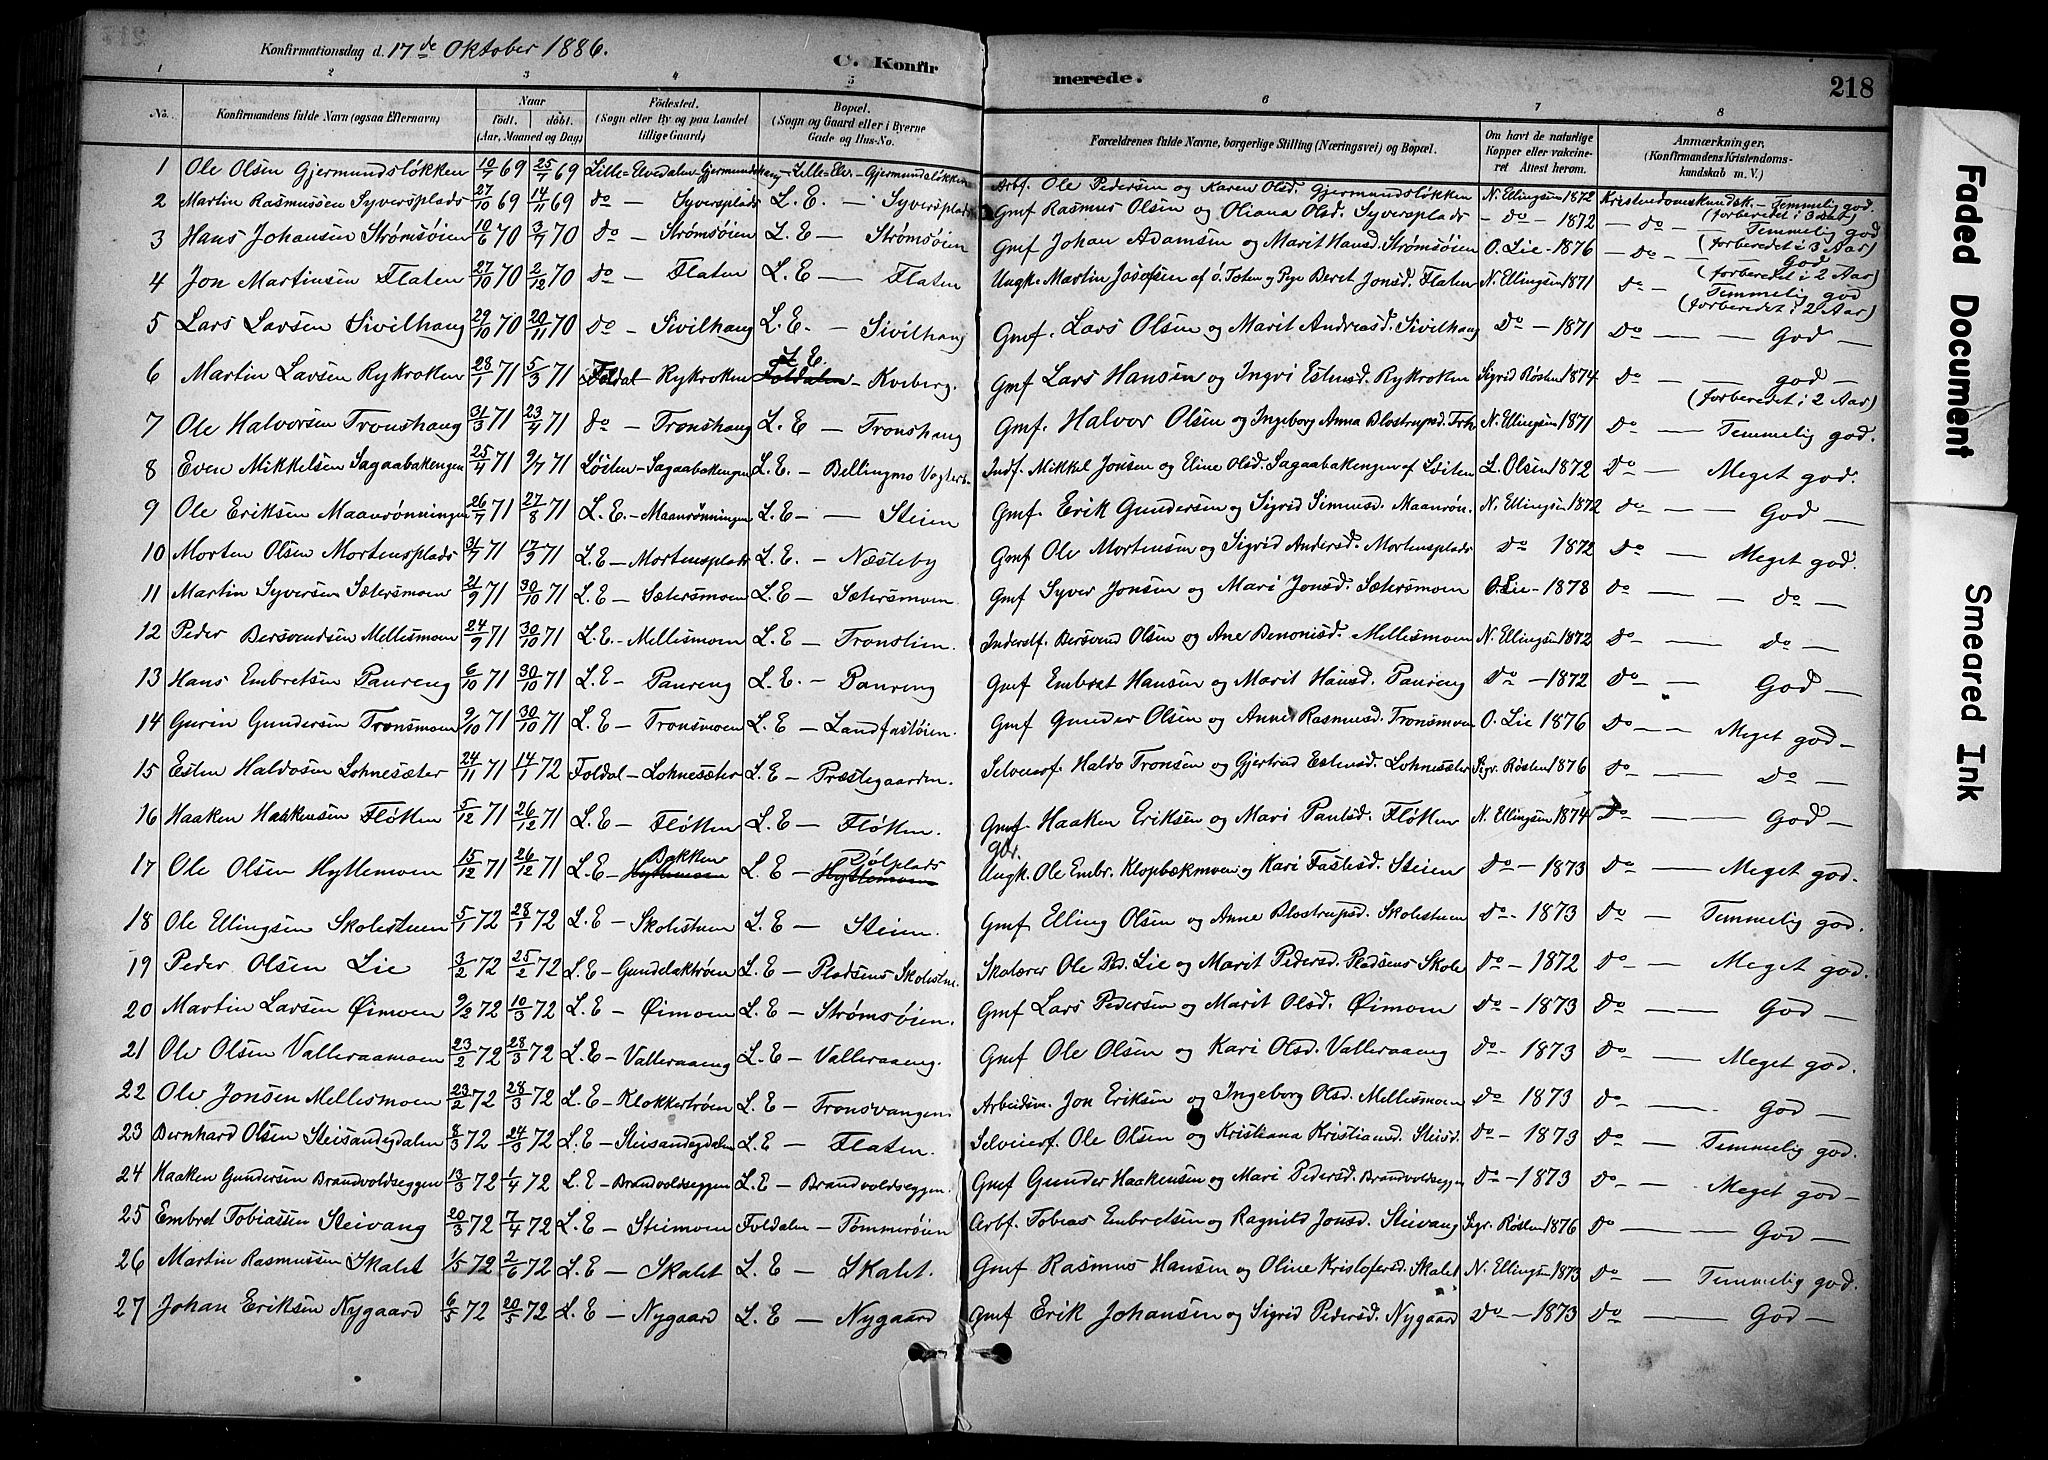 Konfirmationsdag d. 17de Oktober 1886.
C. Konfirmerede. 218
1 2 3 4 5 6 7 8
No. Konfirmandens fulde Navn (ogsaa Efternavn) Naar födt. döbt. (Aar, Maaned og Dag) Födested. (Sogn eller By og paa Landet tillige Gaard) Bopæl. (Sogn og Gaard eller i Byerne Gade og Hus-No. Forældrenes fulde Navne, borgerlige Stilling (Næringsvei) og Bopæl. Om havt de naturlige Kopper eller vakcineret Attest herom. Anmærkninger. (Konfirmandens Kristendomskundskab m. V.)
1 Ole Olsen Gjermundsløkken 10/7 69 25/7 69 Lille-Elvedalen-Gjermundshaug Lille-Elv.-Gjermundsløkken Arbf. Ole Pedersen og Karen Olsd. Gjermundsløkken N. Ellingsen 1872 Kristendomskundsk. - Temmelig god. (forberedet i 3 Aar)
2 Martin Rasmussen Syversplads 27/10 69 14/11 69 do - Syversplads L. E. - Syversplads Gmf Rasmus Olsen og Oliana Olsd. Syversplads - do - 1872 - do - Temmelig god (forberedet i 3 Aar)
3 Hans Johansen Strømsøien 10/6 70 3/7 70 do - Strømsøien L. E - Strømsøien Gmf Johan Adamsen og Marit Hansd. Strømsøien O. Lie - 1876 - do - God (forberedet i 2 Aar)
4 Jon Martinsen Flaten 27/10 70 2/12 70 do - Flaten L. E - Flaten Ungk. Martin Josefsen af ö. Toten og Pige Beret Jonsd. Flaten N. Ellingsen 1871 do - Temmelig god (forberedet i 2 Aar)
5 Lars Larsen Sivilhaug 29/10 70 20/11 70 do - Sivilhaug L. E. - Sivilhaug Gmf. Lars Olsen og Marit Andreasd. Sivilhaug do - 1871 do - God -
6 Martin Larsen Rykroken 28/1 71 5/3 71 Foldal - Rykroken L. E. Foldalen - Kveberg. Gmf Lars Hansen og Ingri Estensd. Rykroken Sigrid Røsten 1874 do - god - (forberedet i 2 Aar)
7 Ole Halvorsen Tronshaug 31/3 71 23/4 71 do - Tronshaug L. E - Tronshaug Gmf. Halvor Olsen og Ingeborg Anna Blostrupsd. N. Ellingsen 1871 do - Temmelig god.
8 Even Mikkelsen Sagaabakengen 25/4 71 9/7 71 Løiten - Sagaabakengen L. E. - Bellingmo Indf. Mikkel Jonsen og Eline Olsd. Sagaabakengen af Løiten L. Olsen 1872 do - Meget god.
9 Ole Eriksen Maanrønningen 26/7 71 27/8 71 L. E. - Maanrønningen L. E - Steien Gmf. Erik Gundersen og Sigrid Simensd. Maanrøn. N. Ellingsen 1872 do - God -
10 Morten Olsen Mortensplads 31/7 71 17/9 71 L. E - Mortensplads L. E - Næsteby Gmf Ole Mortensen og Sigrid Andersd. Mortensplads do 1872 do - Meget god.
11 Martin Syversen Sætersmoen 21/9 71 30/10 71 L. E - Sætersmoen L. E - Sætersmoen. Gmf Syver Jonsen og Mari Jonsd. Sætersmoen O. Lie - 1878 do - do -
12 Peder Bersvendsen Mellesmoen 24/9 71 30/10 71 L. E. - Mellesmoen L. E - Tronslien. Inderstf. Bersvend Olsen og Ane Benonisd. Mellesmoen N. Ellingsen 1872 do - do -
13 Hans Embretsen Paureng 6/10 71 30/10 71 L. E - Paureng L. E. - Paureng Gmf Embret Hansen og Marit Hansd. Paureng do - 1872 do - God -
14 Gurin Gundersen Tronsmoen 9/10 71 30/10 71 L. E - Tronsmoen L. E - Landfastøien. Gmf Gunder Olsen og Anne Rasmusd. Tronsmoen O. Lie 1876 do - Meget god -
15 Esten Haldosen Lohnesæter 24/11 71 14/1 72 Foldal - Lohnesæter L. E - Præstegaarden. Selveierf. Haldo Tronsen og Gjertrud Estensd. Lohnesæter Sigr. Røsten 1876 do - do -
16 Haaken Haakensen Fløtten 5/12 71 26/12 71 L. E - Fløtten L. E - Fløtten. Gmf. Haaken Eriksen og Mari Paulsd. Fløtten N. Ellingsen 1874 do - God -
17 Ole Olsen Hyttemoen 15/12 71 26/12 71 L. E - Bakken Hyttemoen L. E - Hyttemoen Ungk. Ole Embr. Klopbækmoen og Kari Fastesd. Steien do - 1873 do - Meget god.
18 Ole Ellingsen Skolestuen 5/1 72 28/1 72 L. E - Skolestuen L. E - Steien. Gmf Elling Olsen og Anne Blostrupsd. Skolestuen do - 1873 do - Temmelig god.
19 Peder Olsen Lie 3/2 72 25/2 72 L. E - Gundelaktrøen L. E - Pladsens Skolestue. Skolærer Ole Lie og Marit Pedersd. Pladsens Skole do - 1872 do - Meget god.
20 Martin Larsen Øimoen 9/2 72 10/3 72 L. E - Øimoen L. E - Strømsøien. Gmf Lars Pedersen og Marit Olsd. Øimoen do - 1873 do - God -
21 Ole Olsen Valleraamoen 23/2 72 28/3 72 L. E - Valleraaeng L. E - Valleraaeng. Gmf Ole Olsen og Kari Olsd. Valleraaeng do - 1873 do - Meget god.
22 Ole Jonsen Mellesmoen 23/2 72 28/3 72 L. E - Klokkertrøen L. E - Tronsvangen. Arbeidsm. Jon Eriksen og Ingeborg Olsd. Mellesmoen do - 1873 do - God -
23 Bernhard Olsen Steisandegdalen 8/3 72 24/3 72 L. E - Steisandegdalen L. E - Flaten. Selveierf. Ole Olsen og Kristiana Kristiansd. Steisd. do - 1873 do - Temmelig god.
24 Haaken Gundersen Brandvoldseggen 13/3 72 1/4 72 L. E - Brandvoldseggen L. E - Brandvoldseggen. Gmf Gunder Haakensen og Mari Pedersd. Brandvoldseggen do - 1873 do - Meget god -
25 Embret Tobiassen Steivang 20/3 72 7/4 72 L. E - Steimoen Foldalen - Tømmerøien Arbf. Tobias Embretsen og Ragnild Jonsd. Steivang Sigr. Røsten 1876 do - God -
26 Martin Rasmussen Skalet 1/5 72 2/6 72 L. E - Skalet L. E - Skalet. Gmf Rasmus Hansen og Oline Kristofersd. Skalet N. Ellingsen 1873 do - Temmelig god.
27 Johan Eriksen Nygaard 6/5 72 20/5 72 L. E - Nygaard L. E - Nygaard Gmf Erik Johansen og Sigrid Pedersd. Nygaard do - 1873 do - God -
Faded Document
Smeared Ink